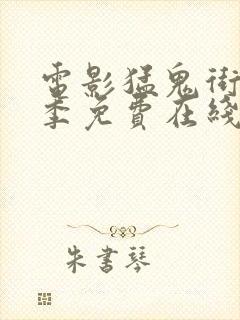 電影猛鬼街
季免費在綫
朱書琴